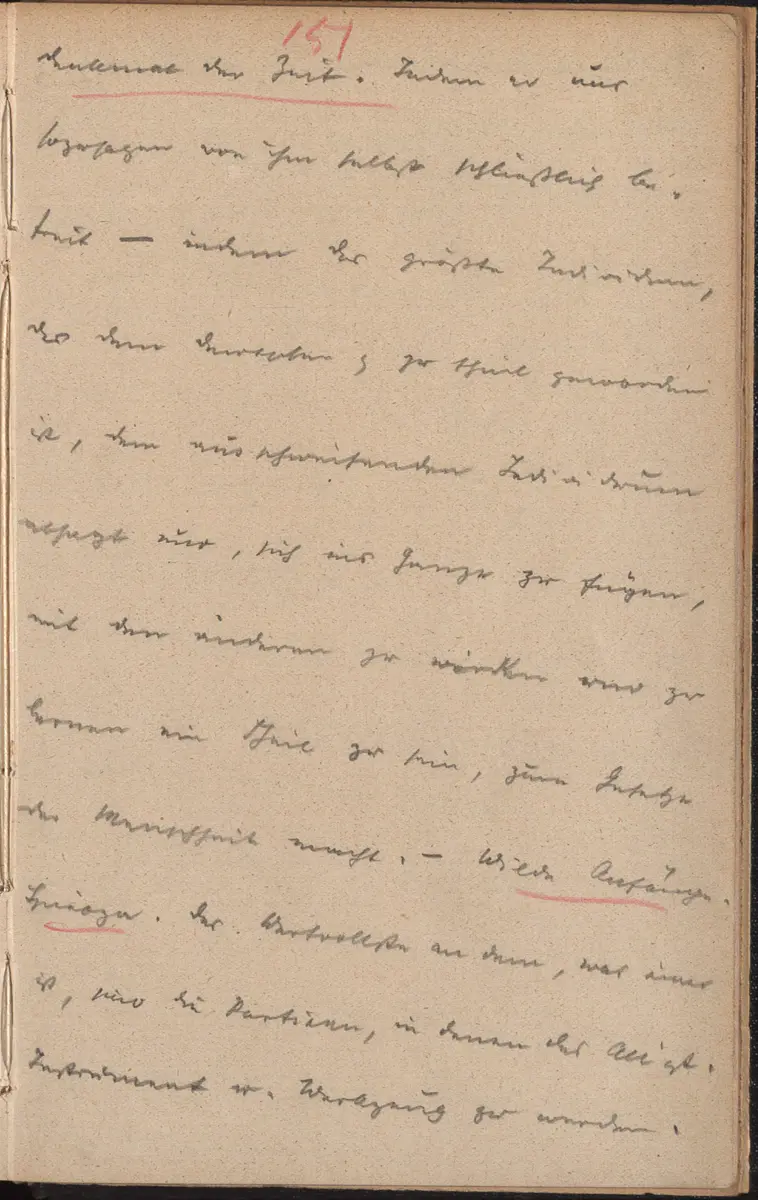 151
denkmal der Zeit. Indem er uns
sozusagen von ihm selbst schließlich be-
freit — indem das größte Individuum,
das dem Deutschen zu theil geworden
ist, dem ausschweifenden Individuum
absagt und, sich ins Ganze zu fügen,
mit den anderen zu wirken und zu
lernen ein Theil zu sein, zum Gesetze
der Menschheit macht. — Wilde Anfänge.
Spinoza. Das Wertvollste an dem, was einer
ist, sind die Partieen, in denen das All ist.
Instrument u. Werkzeug zu werden.